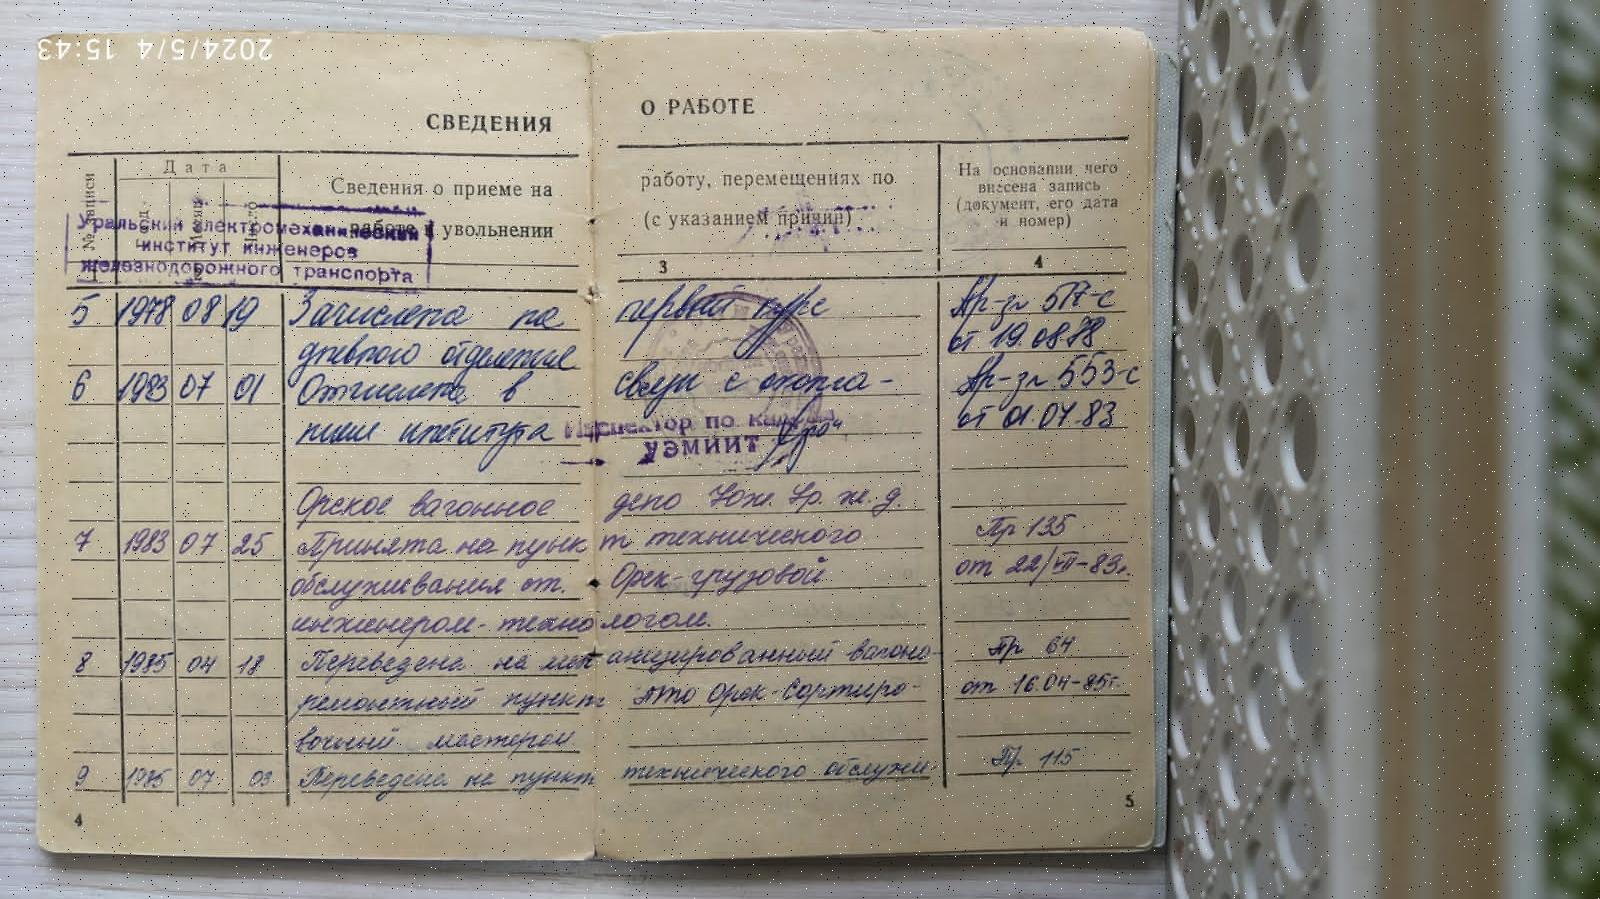 2024/5/4 15:43
СВЕДЕНИЯ О РАБОТЕ
№ записи
Дата
Сведения о приеме на работу, перемещениях по
работе и увольнении (с указанием причин)
На основании чего
внесена запись
(документ, его дата
и номер)
3 4
Уральский электромеханический
институт инженеров
железнодорожного транспорта
5 1978 08 19 Зачислена на первый курс Пр-з № 517-с
дневного отделения от 19.08.78
6 1983 07 01 Отчислена в связи с оконча- Пр-з № 553-с
нием института от 01.07.83
Инспектор по кадрам
УЭМИИТ
Орское вагонное депо Юж. Ур. ж. д.
7 1983 07 25 Принята на пункт технического Пр 135
обслуживания ст. Орск-грузовой от 22/VII-83г.
инженером-технологом.
8 1985 04 18 Переведена на механизированный вагоно- Пр 64
ремонтный пункт ПТО Орск-Сортиро- от 16.04-85г.
вочный мастером
9 1985 07 03 Переведена на пункт технического обслужи- Пр 115
4 5